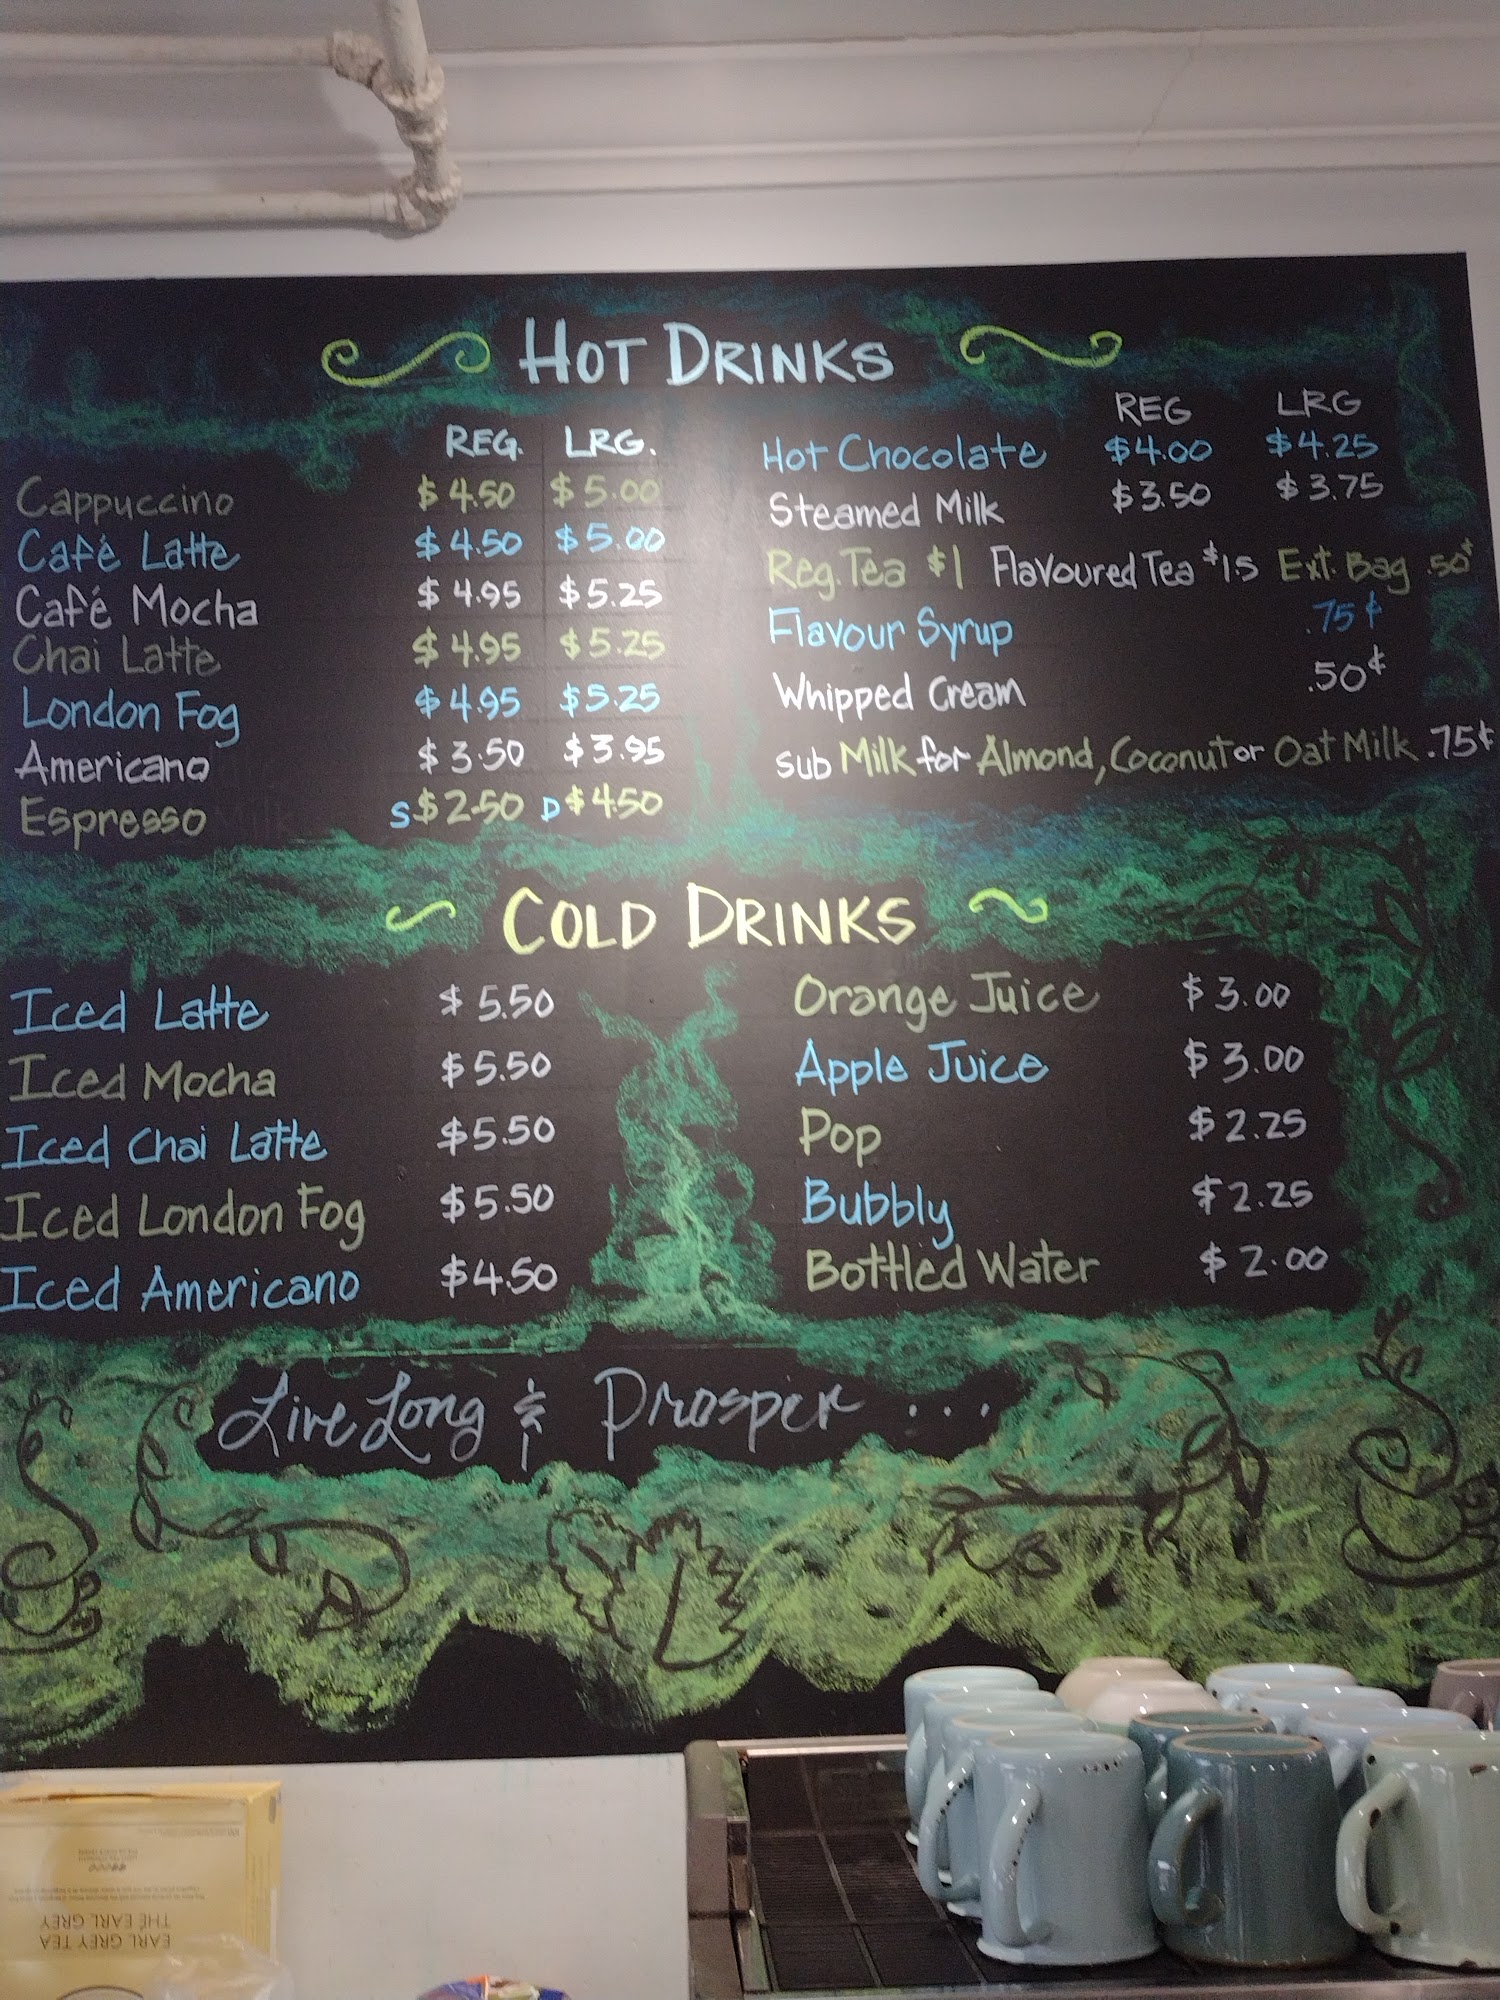 HOT DRINKS
REG. LRG.
Cappuccino $4.50 $5.00
Café Latte $4.50 $5.00
Café Mocha $4.95 $5.25
Chai Latte $4.95 $5.25
London Fog $4.95 $5.25
Americano $3.50 $3.95
Espresso S $2.50 D $4.50
REG LRG
Hot Chocolate $4.00 $4.25
Steamed Milk $3.50 $3.75
Reg. Tea $1 Flavoured Tea $1.5 Ext. Bag .50¢
Flavour Syrup .75¢
Whipped Cream .50¢
sub Milk for Almond, Coconut or Oat Milk .75¢
COLD DRINKS
Iced Latte $5.50
Iced Mocha $5.50
Iced Chai Latte $5.50
Iced London Fog $5.50
Iced Americano $4.50
Orange Juice $3.00
Apple Juice $3.00
Pop $2.25
Bubbly $2.25
Bottled Water $2.00
Live Long & Prosper ...
EARL GREY TEA
THÉ EARL GREY